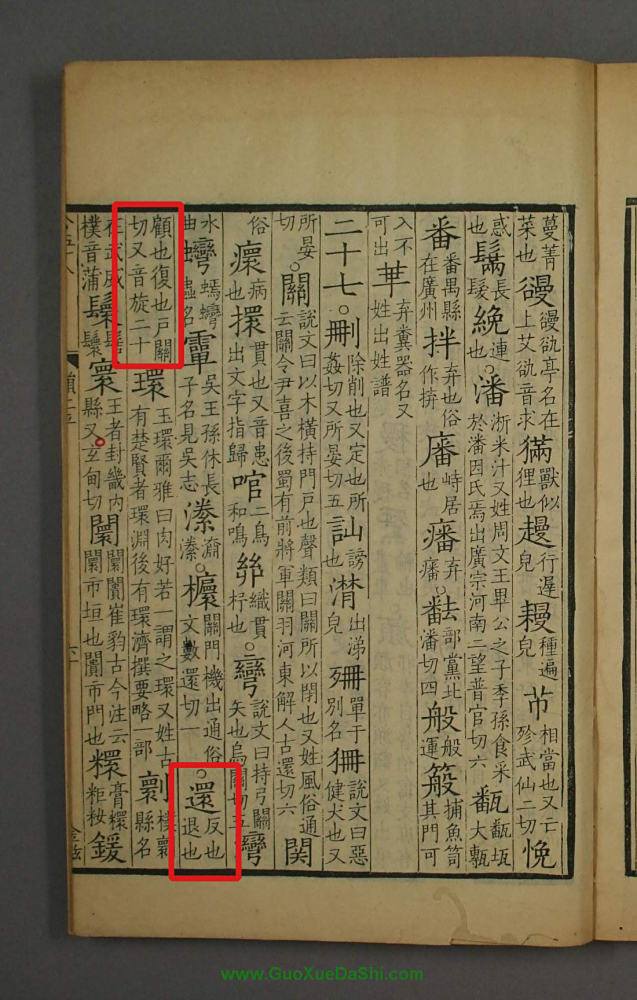 蔓菁菜也 謾㰻亭名在上艾㰻音求 獸似狸也 行遲皃 種遍皃 㒼 相當也又亡殄武仙二切 悗
惑也 鬗 長髮 絻 連也。潘 淅米汁又姓周文王畢公之子季孫食采於潘因氏焉出廣宗河南二望普官切六 大甎
番 番禺縣在廣州 拌 弃也俗作拚 峙居也 弃 部黨北潘切四 般 般運 捕魚笱其門可
入不可出 𠦒 弃糞器名又姓出姓譜
二十七。刪 除削也又定也所姦切又所晏切五 訕 謗也 潸 出涕皃 單于別名 狦 說文曰惡健犬也又
所晏切。關 說文曰以木橫持門戶也聲類曰關所以閉也又姓風俗通云關令尹喜之後蜀有前將軍關羽河東解人古還切六 関
俗 癏 病也 擐 貫也又音患出文字指歸 二鳥和鳴 織貫杼也。彎 說文曰持弓關矢也烏關切五 灣
水曲 蟲名 吳王孫休長子名見吳志 潫。櫦 關門機出通俗文數還切一。還 反也退也
顧也復也戶關切又音旋二十 環 玉環爾雅曰肉好若一謂之環又姓古有楚賢者環淵後有環濟撰要略一部 㔶 樸㔶縣名
在武威樸音蒲 鬟 髻鬟 寰 王者封畿內縣又玄甸切 闤 闤闠崔豹古今注云闤市垣也闠市門也 糫 膏糫粔籹 鍰
www.GuoXueDaShi.com